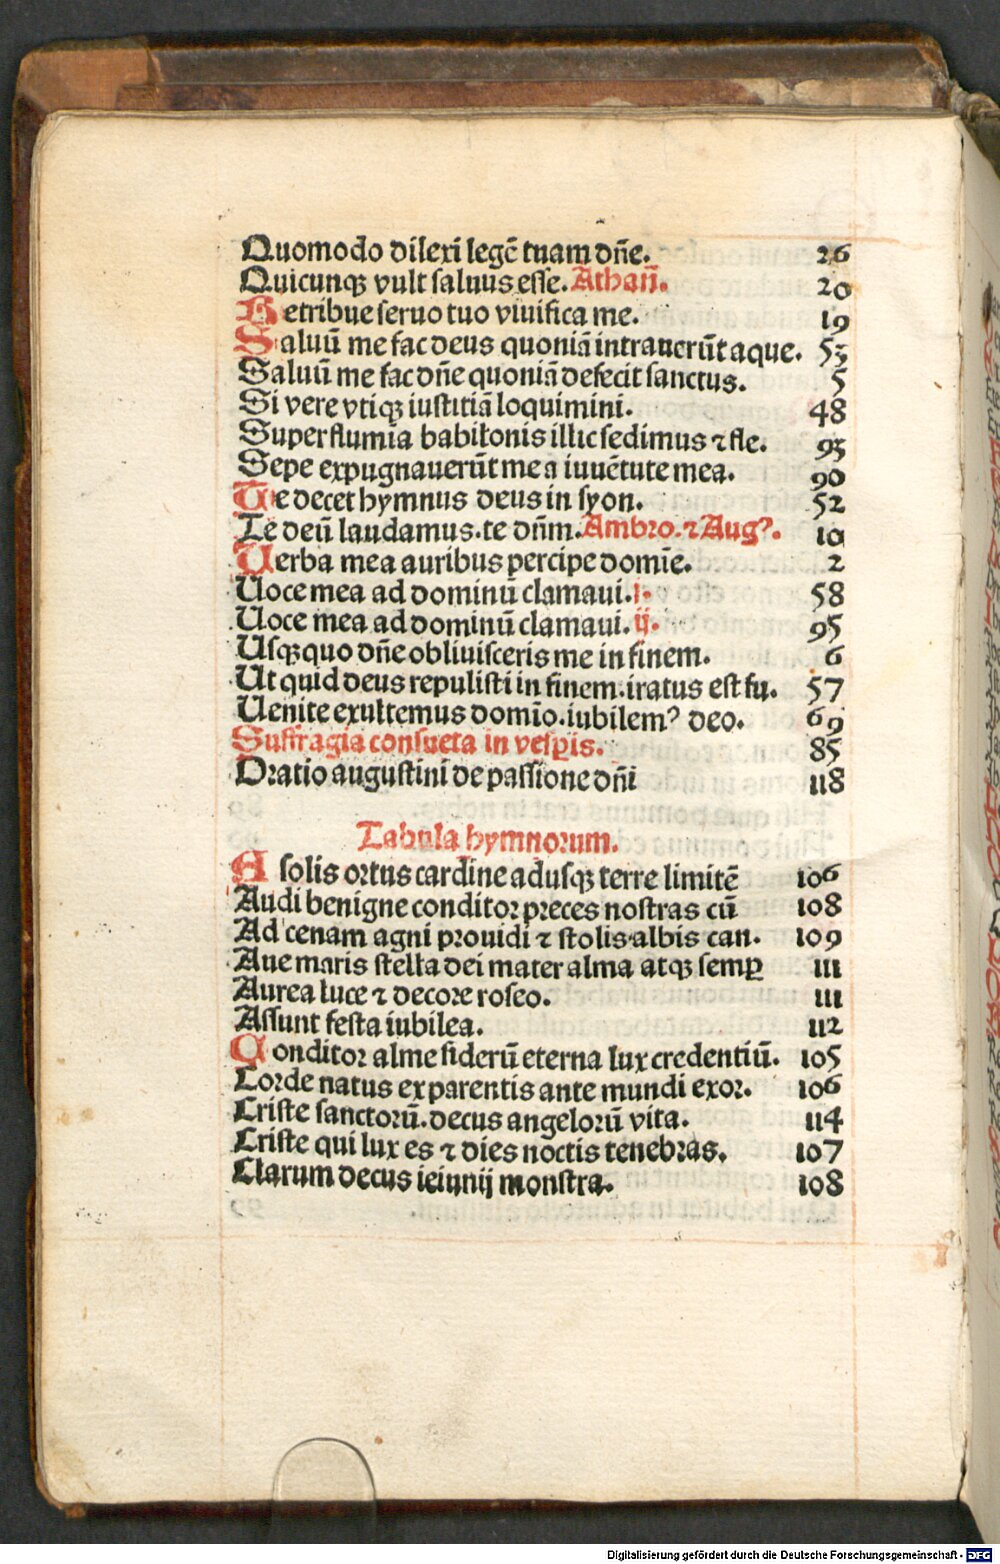 Quomodo dilexi legē tuam dn̄e. 26
Quicunqꝫ vult saluus esse. Athan̄. 20
Retribue seruo tuo viuifica me. 19
Saluū me fac deus quoniā intrauerūt aque. 53
Saluū me fac dn̄e quoniā defecit sanctus. 5
Si vere vtiqꝫ iustitiā loquimini. 48
Super flumīa babilonis illic sedimus ⁊ fle. 93
Sepe expugnauerūt me a iuuētute mea. 90
Te decet hymnus deus in syon. 52
Te deū laudamus. te dn̄m. Ambro. ⁊ Augꝰ. 10
Uerba mea auribus percipe domīe. 2
Uoce mea ad dominū clamaui. i. 58
Uoce mea ad dominū clamaui. ij. 95
Usqꝫquo dn̄e obliuisceris me in finem. 6
Ut quid deus repulisti in finem. iratus est fu. 57
Uenite exultemus domīo. iubilemꝰ deo. 69
Suffragia consueta in vesꝑis. 85
Oratio augustini de passione dn̄i 118
Tabula hymnorum.
A solis ortus cardine adusqꝫ terre limitē 106
Audi benigne conditor preces nostras cū 108
Ad cenam agni prouidi ⁊ stolis albis can. 109
Aue maris stella dei mater alma atqꝫ semꝑ 111
Aurea luce ⁊ decore roseo. 111
Assunt festa iubilea. 112
Conditor alme siderū eterna lux credentiū. 105
Corde natus ex parentis ante mundi exor. 106
Criste sanctorū. decus angelorū vita. 114
Criste qui lux es ⁊ dies noctis tenebras. 107
Clarum decus ieiunij monstra. 108
Digitalisierung gefördert durch die Deutsche Forschungsgemeinschaft - DFG